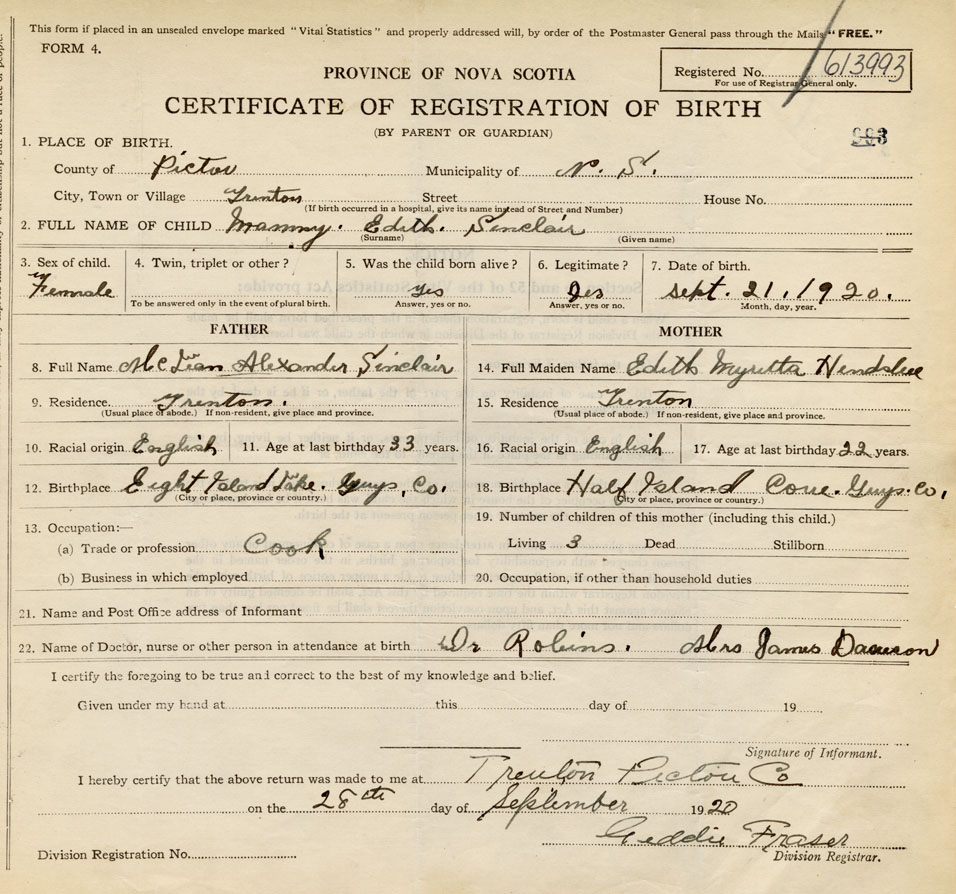 This form if placed in an unsealed envelope marked "Vital Statistics" and properly addressed will, by order of the Postmaster General pass through the Mails "FREE."
FORM 4.
Registered No. 613993
For use of Registrar General only.
PROVINCE OF NOVA SCOTIA
CERTIFICATE OF REGISTRATION OF BIRTH
(BY PARENT OR GUARDIAN)
993
1. PLACE OF BIRTH.
County of Pictou Municipality of N. S.
City, Town or Village Trenton Street House No.
(If birth occurred in a hospital, give its name instead of Street and Number)
2. FULL NAME OF CHILD Edith. Sinclair
(Surname) (Given name)
3. Sex of child. 4. Twin, triplet or other? 5. Was the child born alive? 6. Legitimate? 7. Date of birth.
Female Yes Yes sept. 21. 1920.
To be answered only in the event of plural birth. Answer, yes or no. Answer, yes or no. Month, day, year.
FATHER MOTHER
8. Full Name Alexander Sinclair 14. Full Maiden Name Edith Myretta
9. Residence Trenton. 15. Residence Trenton
(Usual place of abode.) If non-resident, give place and province. (Usual place of abode.) If non-resident, give place and province.
10. Racial origin English 11. Age at last birthday 33 years. 16. Racial origin English 17. Age at last birthday 22 years.
12. Birthplace Eight Island Lake. Guys. Co. 18. Birthplace Half Island Cove. Guys. Co.
(City or place, province or country.) (City or place, province or country.)
13. Occupation:— 19. Number of children of this mother (including this child.)
(a) Trade or profession Cook Living 3 Dead Stillborn
(b) Business in which employed 20. Occupation, if other than household duties
21. Name and Post Office address of Informant
22. Name of Doctor, nurse or other person in attendance at birth Dr Robins. Mrs James
I certify the foregoing to be true and correct to the best of my knowledge and belief.
Given under my hand at this day of 19
Signature of Informant.
I hereby certify that the above return was made to me at Trenton Pictou Co
on the 28th day of September 1920
Geddie Fraser
Division Registration No. Division Registrar.